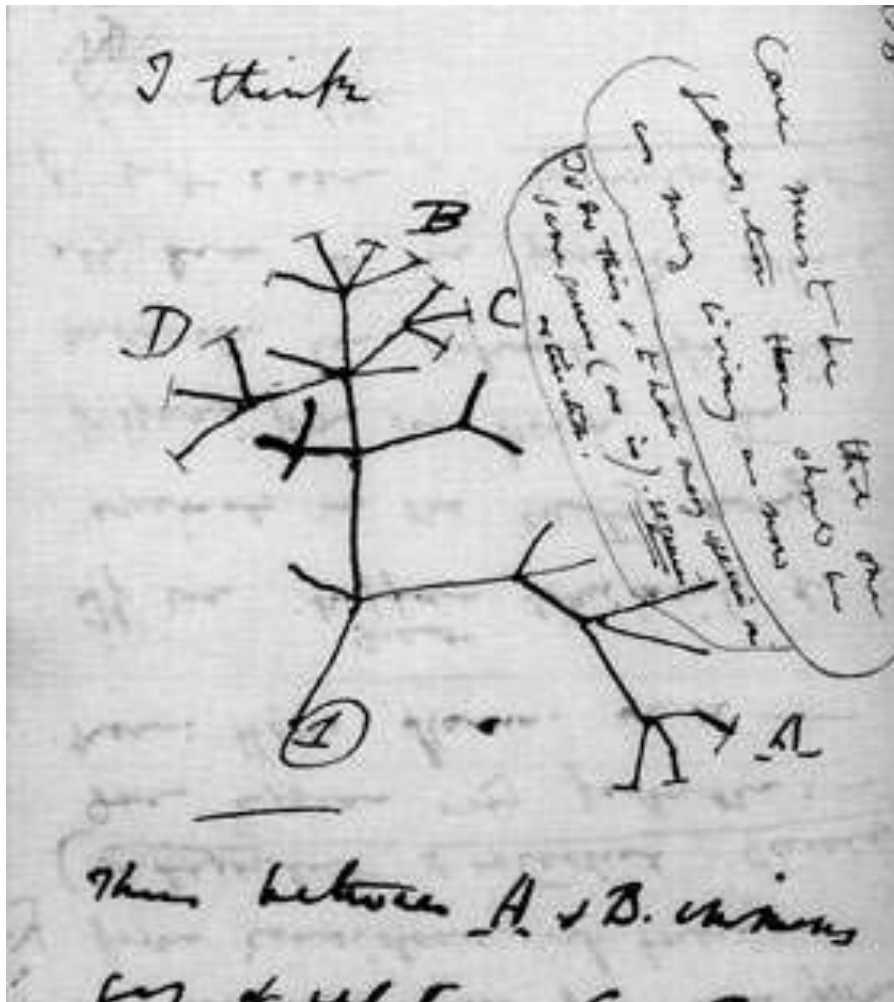 I think
B
D
C
Case must be that one
generation then should be
as many living as now
To do this & to have many species in
same genus (as is). requires
extinction.
1
A
Thus between A & B. immens
gap of relation. C